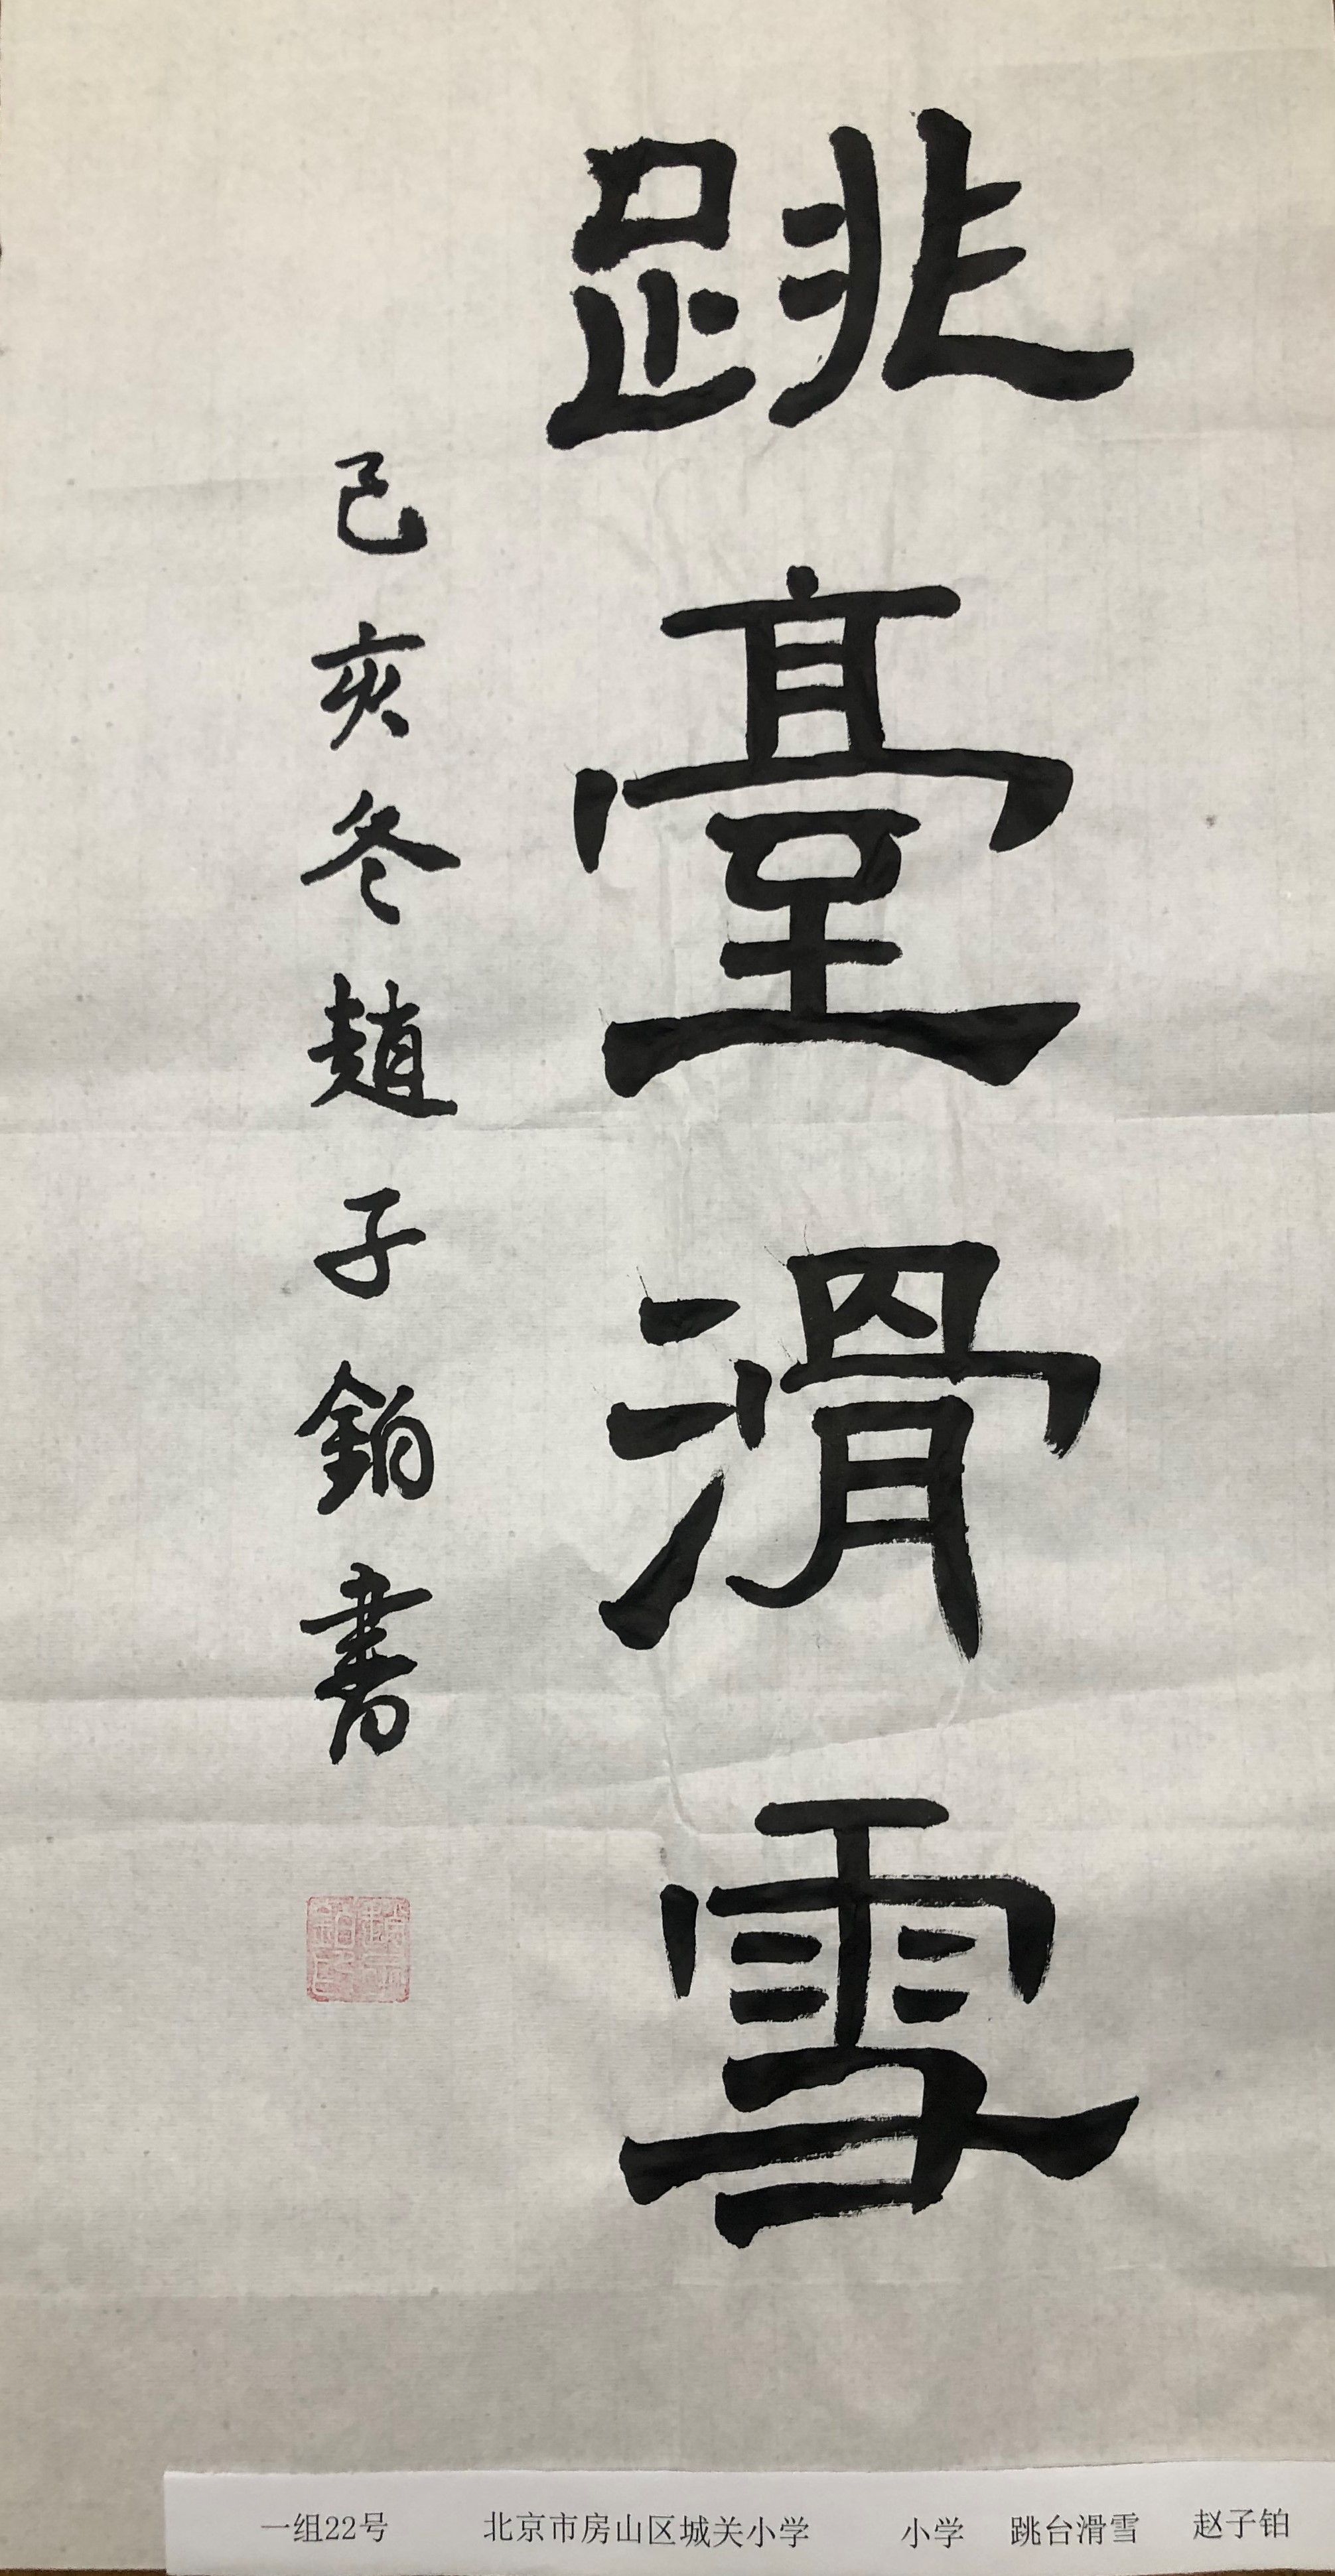 跳臺滑雪
己亥冬趙子鉑書
一组22号 北京市房山区城关小学 小学 跳台滑雪 赵子铂